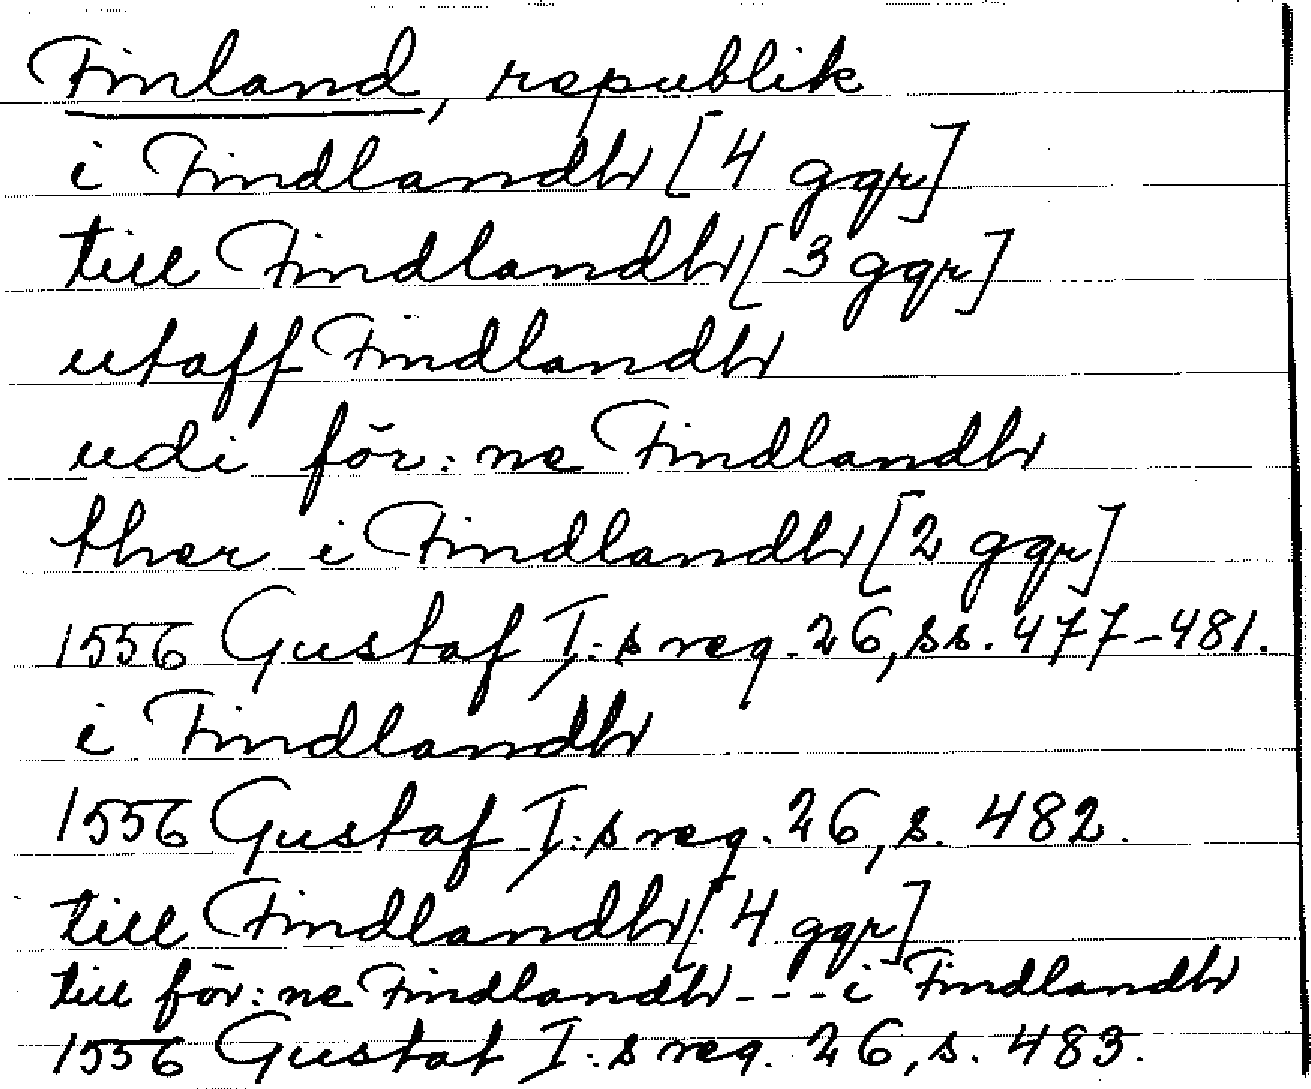 Finland, republik
i Findlandh [4 ggr]
till Findlandh [3 ggr]
utaff Findlandh
udi för:ne Findlandh
ther i Findlandh [2 ggr]
1556 Gustaf I:s reg. 26, ss. 477-481.
i Findlandh
1556 Gustaf I:s reg. 26, s. 482.
till Findlandh [4 ggr]
till för:ne Findlandh - - - i Findlandh
1556 Gustaf I:s reg. 26, s. 483.